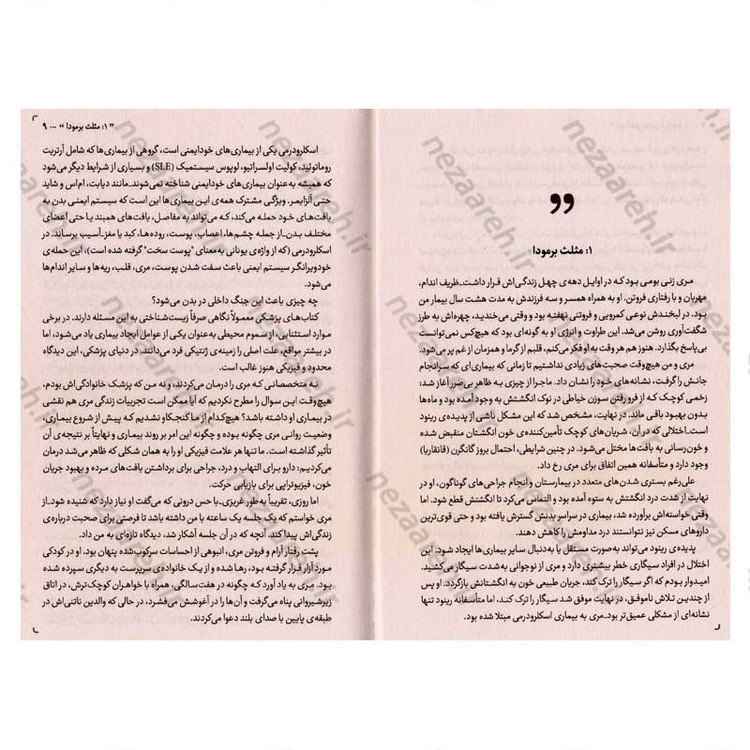 ”
۱: مثلث برمودا
مری زنی بومی بود که در اوایل دهه‌ی چهل زندگی‌اش قرار داشت_ظریف اندام،
مهربان و با رفتاری فروتن. او به همراه همسر و سه فرزندش به مدت هشت سال بیمار من
بود. در لبخندش نوعی کمرویی و فروتنی نهفته بود و وقتی می‌خندید، چهره‌اش به طرز
شگفت‌آوری روشن می‌شد. این طراوت و انرژی او به گونه‌ای بود که هیچ‌کس نمی‌توانست
بی‌پاسخ بگذارد. هنوز هم هر وقت به او فکر می‌کنم، قلبم از گرما و همزمان از غم پر می‌شود.
مری و من هیچ‌وقت صحبت های زیادی نداشتیم تا زمانی که بیماری‌ای که سرانجام
جانش را گرفت، نشانه‌های خود را نشان داد. ماجرا از چیزی به ظاهر بی‌ضرر آغاز شد:
زخمی کوچک که از فرو رفتن سوزن خیاطی در نوک انگشتش به وجود آمده بود و ماه‌ها
بدون بهبود باقی ماند. در نهایت، مشخص شد که این مشکل ناشی از پدیده‌ی رینود
است_اختلالی که در آن، شریان‌های کوچک تأمین‌کننده‌ی خون انگشتان منقبض شده
و خون‌رسانی به بافت‌ها مختل می‌شود. در چنین شرایطی، احتمال بروز گانگرن (قانقاریا)
وجود دارد و متأسفانه همین اتفاق برای مری رخ داد.
علی‌رغم بستری شدن‌های متعدد در بیمارستان و انجام جراحی‌های گوناگون، او در
نهایت از شدت درد انگشتش به ستوه آمده بود و التماس می‌کرد تا انگشتش قطع شود. اما
وقتی خواسته‌اش برآورده شد، بیماری در سراسر بدنش گسترش یافته بود و حتی قوی‌ترین
داروهای مسکن نیز نتوانستند درد مداومش را کاهش دهند.
پدیده‌ی رینود می‌تواند به‌صورت مستقل یا به‌دنبال سایر بیماری‌ها ایجاد شود. این
اختلال در افراد سیگاری خطر بیشتری دارد و مری از نوجوانی به‌شدت سیگار می‌کشید.
امیدوار بودم که اگر سیگار را ترک کند، جریان طبیعی خون به انگشتانش بازگردد. او پس
از چندین تلاش ناموفق، در نهایت موفق شد سیگار را ترک کند، اما متأسفانه رینود تنها
نشانه‌ای از مشکلی عمیق‌تر بود_مری به بیماری اسکلرودرمی مبتلا شده بود.
” ۱: مثلث برمودا “ ... ۹
اسکلرودرمی یکی از بیماری‌های خودایمنی است، گروهی از بیماری‌ها که شامل آرتریت
روماتوئید، کولیت اولسراتیو، لوپوس سیستمیک (SLE) و بسیاری از شرایط دیگر می‌شود
که همیشه به‌عنوان بیماری‌های خودایمنی شناخته نمی‌شوند_مانند دیابت، ام‌اس و شاید
حتی آلزایمر. ویژگی مشترک همه‌ی این بیماری‌ها این است که سیستم ایمنی بدن به
بافت‌های خود حمله می‌کند، که می‌تواند به مفاصل، بافت‌های همبند یا حتی اعضای
مختلف بدن_از جمله چشم‌ها، اعصاب، پوست، روده‌ها، کبد یا مغز_آسیب برساند. در
اسکلرودرمی (که از واژه‌ی یونانی به‌معنای "پوست سخت" گرفته شده است)، این حمله‌ی
خودویرانگر سیستم ایمنی باعث سفت شدن پوست، مری، قلب، ریه‌ها و سایر اندام‌ها
می‌شود.
چه چیزی باعث این جنگ داخلی در بدن می‌شود؟
کتاب‌های پزشکی معمولاً نگاهی صرفاً زیست‌شناختی به این مسئله دارند. در برخی
موارد استثنایی، از سموم محیطی به‌عنوان یکی از عوامل ایجاد بیماری یاد می‌شود، اما
در بیشتر مواقع، علت اصلی را زمینه‌ی ژنتیکی فرد می‌دانند. در دنیای پزشکی، این دیدگاه
محدود و فیزیکی هنوز غالب است.
نه متخصصانی که مری را درمان می‌کردند، و نه من که پزشک خانوادگی‌اش بودم،
هیچ‌وقت این سوال را مطرح نکردیم که آیا ممکن است تجربیات زندگی مری هم نقشی
در بیماری او داشته باشد؟ هیچ‌کدام از ما کنجکاو نشدیم که پیش از شروع بیماری،
وضعیت روانی مری چگونه بوده و چگونه این امر بر روند بیماری و نهایتاً بر نتیجه‌ی آن
تأثیر گذاشته است. ما تنها هر علامت فیزیکی او را به همان شکلی که ظاهر می‌شد درمان
می‌کردیم: دارو برای التهاب و درد، جراحی برای برداشتن بافت‌های مرده و بهبود جریان
خون، فیزیوتراپی برای بازیابی حرکت.
اما روزی، تقریباً به‌طور غریزی_با حس درونی که می‌گفت او نیاز دارد که شنیده شود_از
مری خواستم که یک جلسه یک ساعته با من داشته باشد تا فرصتی برای صحبت درباره‌ی
زندگی‌اش پیدا کند. آنچه که در آن جلسه آشکار شد، دیدگاه تازه‌ای به من داد.
پشت رفتار آرام و فروتن مری، انبوهی از احساسات سرکوب‌شده پنهان بود. او در کودکی
مورد آزار قرار گرفته بود، رها شده و از یک خانواده‌ی سرپرست به دیگری سپرده شده
بود. مری به یاد آورد که چگونه در هفت‌سالگی، همراه با خواهران کوچک‌ترش، در اتاق
زیرشیروانی پناه می‌گرفت و آن‌ها را در آغوشش می‌فشرد، در حالی که والدین ناتنی‌اش در
طبقه‌ی پایین با صدای بلند دعوا می‌کردند.
nezaareh.ir